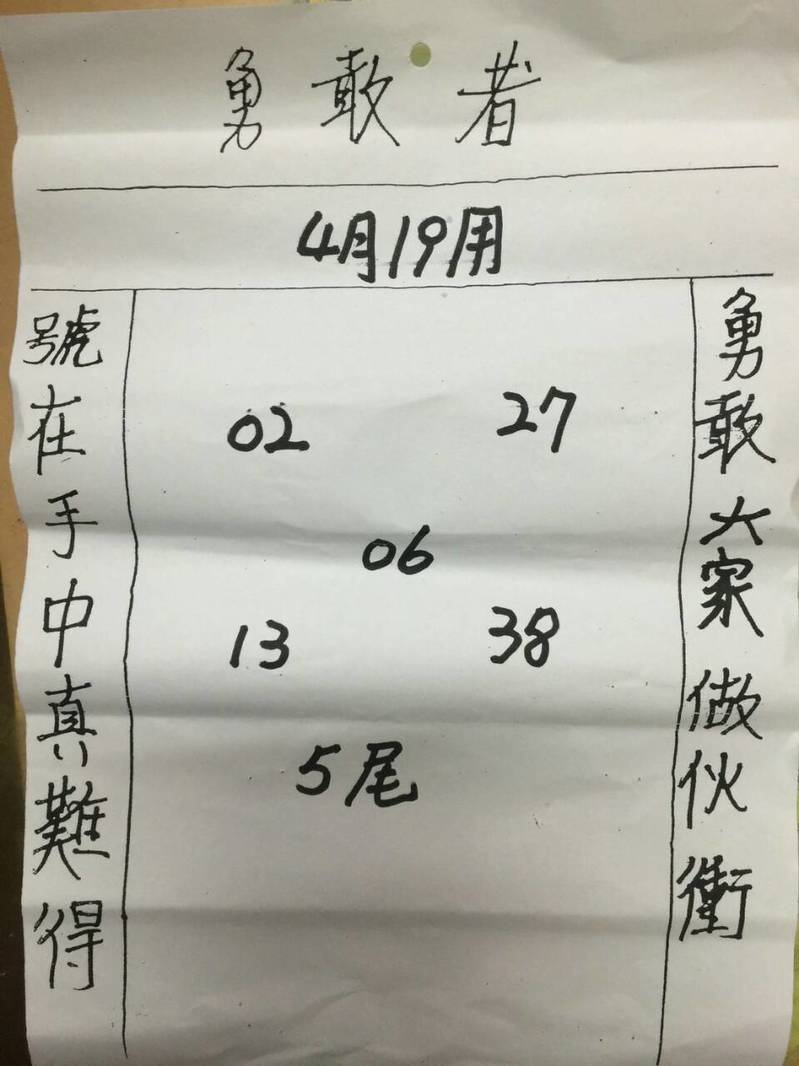 勇敢者
4月19用
勇敢大家做伙衝
號在手中真難得
02 27
06
13 38
5尾